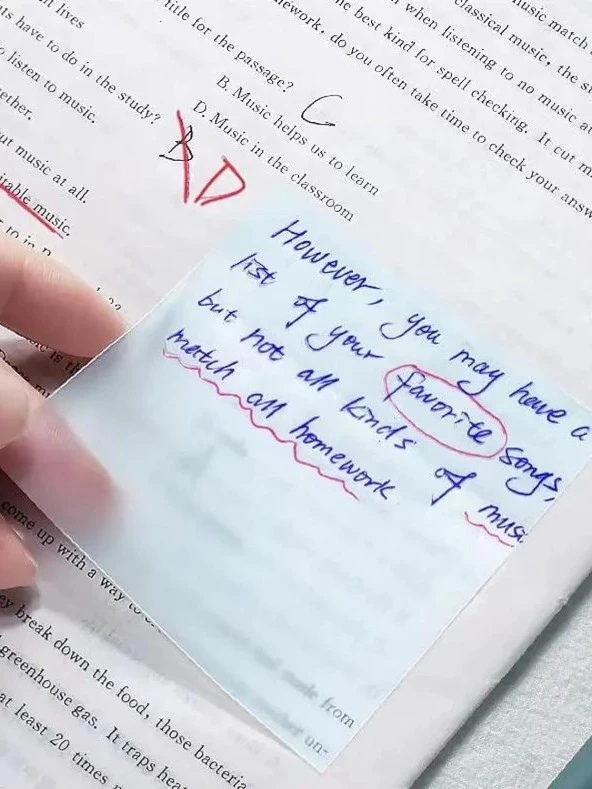 lives
have to do in the study?
listen to music.
music at all.
music.
title for the passage?
B. Music helps us to learn
D. Music in the classroom
C
B
D
music match
classical music, the
when listening to no music at
best kind for spell checking. It cut
do you often take time to check your
However, you may have a
list of your favorite songs,
but not all kinds of musi
match all homework
come up with a way to
break down the food, those bacteria
greenhouse gas. It traps
at least 20 times
made from
un-